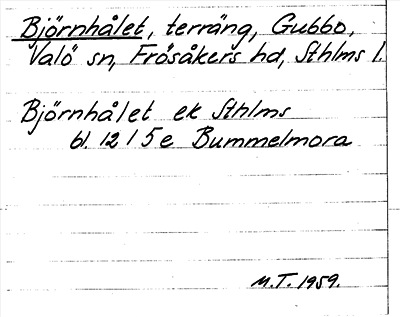 Björnhålet, terräng, Gubbo,
Valö sn, Frösåkers hd, Sthlms l.
Björnhålet ek Sthlms
bl. 12 I 5 e Bummelmora
M.T. 1959.